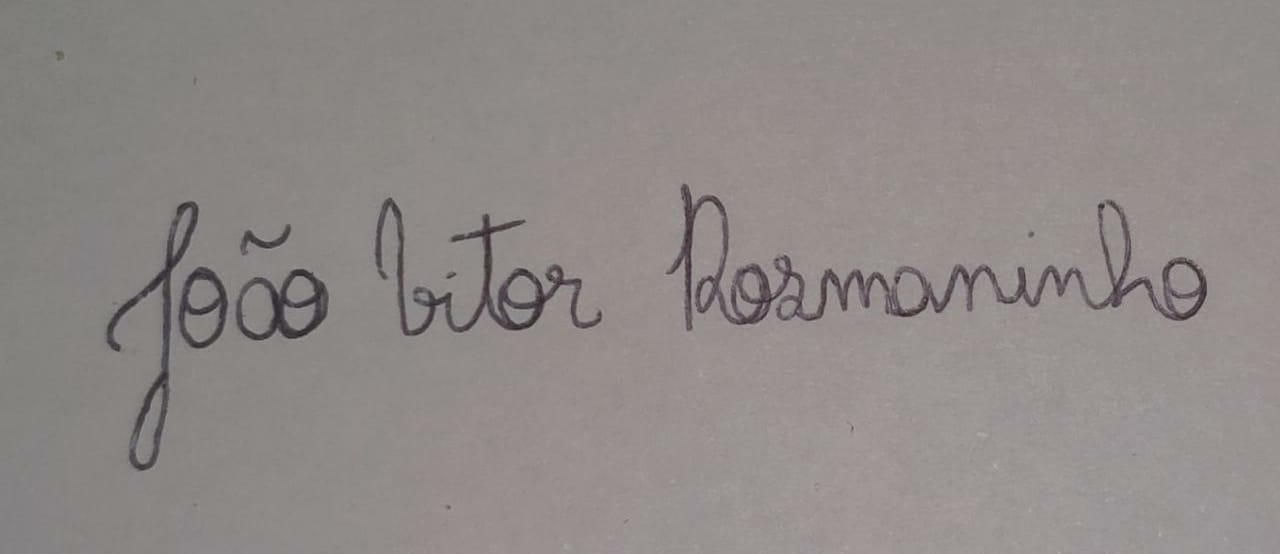 João Vitor Rosmaninho